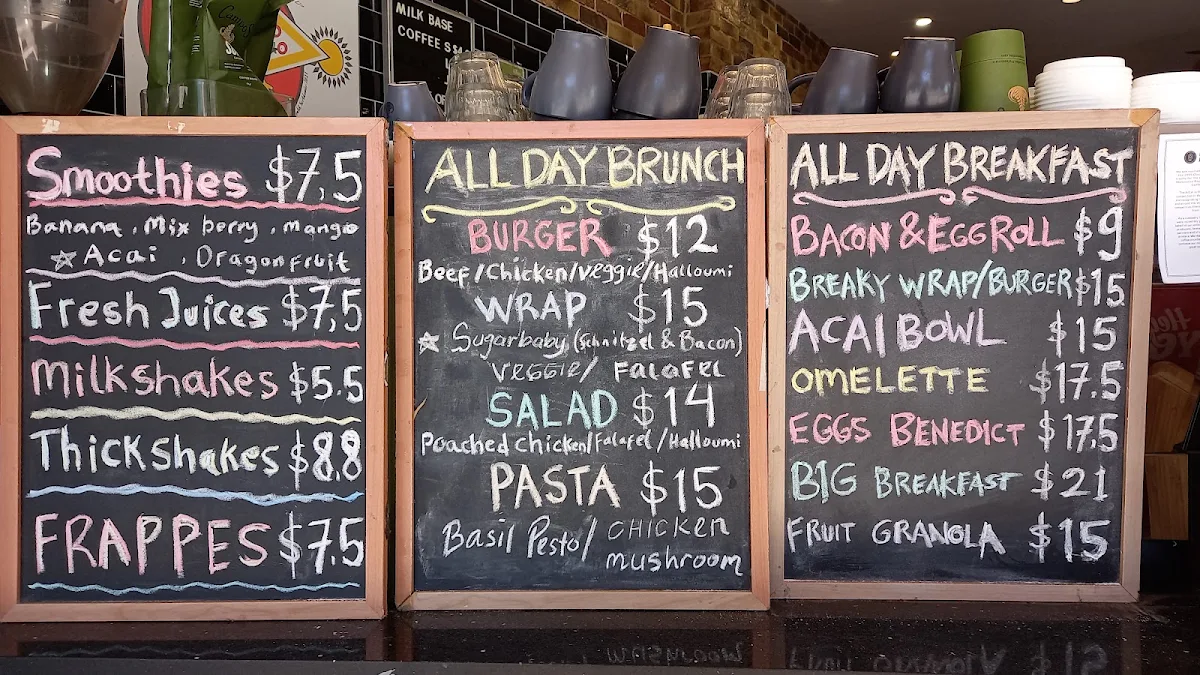 MILK BASE
COFFEE S $4
Smoothies $7,5
Banana , Mix berry , mango
☆ Acai , Dragonfruit
Fresh Juices $7,5
Milkshakes $5.5
Thickshakes $8.8
FRAPPES $7.5
ALL DAY BRUNCH
BURGER $12
Beef/Chicken/veggie/Halloumi
WRAP $15
☆ Sugarbaby (Schnitzel & Bacon)
Veggie/ Falafel
SALAD $14
Poached chicken/Falafel/Halloumi
PASTA $15
Basil Pesto/ CHICKEN
mushroom
ALL DAY BREAKFAST
BACON & EGG ROLL $9
BREAKY WRAP/BURGER $15
ACAI BOWL $15
OMELETTE $17.5
EGGS BENEDICT $17.5
BIG BREAKFAST $21
FRUIT GRANOLA $15